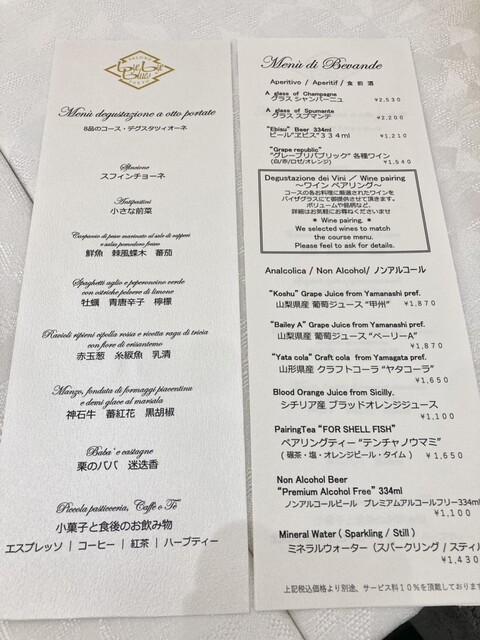 Menù degustazione a otto portate
8品のコース・デグスタツィオーネ
Sfincione
スフィンチョーネ
Antipastini
小さな前菜
Carpaccio di pesce marinato al sale di capperi
e salsa pomodoro fresco
鮮魚 棘風蝶木 蕃茄
Spaghetti aglio e peperoncino verde
con ostriche polvere di limone
牡蠣 青唐辛子 檸檬
Ravioli ripieni cipolla rossa e ricotta ragu di tricia
con fiore di crisantemo
赤玉葱 糸縒魚 乳清
Manzo, fonduta di formaggi piacentinu
e demi glace al marsala
神石牛 蕃紅花 黒胡椒
Baba' e castagne
栗のババ 迷迭香
Piccola pasticceria, Caffe o Tè
小菓子と食後のお飲み物
エスプレッソ | コーヒー | 紅茶 | ハーブティー
Menù di Bevande
Aperitivo / Aperitif / 食前酒
A glass of Champagne
グラス シャンパーニュ
¥2,530
A glass of Spumante
グラス スプマンテ
¥2,200
"Ebisu" Beer 334ml
ビール"ヱビス"334ml
¥1,210
"Grape republic"
"グレープリパブリック" 各種ワイン
(白/赤/ロゼ/オレンジ)
¥1,540
Degustazione dei Vini / Wine pairing
～ワイン ペアリング～
コースの各お料理に厳選されたワインを
バイザグラスにて御提供させて頂きます。
ボリュームや銘柄など、
詳細はお気軽にお尋ねくださいませ
* Wine pairing. *
We selected wines to match
the course menu.
Please feel to ask for details.
Analcolica / Non Alcohol/ ノンアルコール
"Koshu" Grape Juice from Yamanashi pref.
山梨県産 葡萄ジュース "甲州" ¥1,870
"Bailey A" Grape Juice from Yamanashi pref.
山梨県産 葡萄ジュース "ベーリーA"
¥1,870
"Yata cola" Craft cola from Yamagata pref.
山形県産 クラフトコーラ "ヤタコーラ"
¥1,650
Blood Orange Juice from Sicilly.
シチリア産 ブラッドオレンジジュース
¥1,100
PairingTea "FOR SHELL FISH"
ペアリングティー "テンチャノウマミ"
(碾茶・塩・オレンジピール・タイム) ¥1,650
Non Alcohol Beer
"Premium Alcohol Free" 334ml
ノンアルコールビール プレミアムアルコールフリー334ml
¥1,100
Mineral Water ( Sparkling / Still )
ミネラルウォーター (スパークリング / スティル
¥1,430
上記税込価格より別途、サービス料10%を頂戴しております